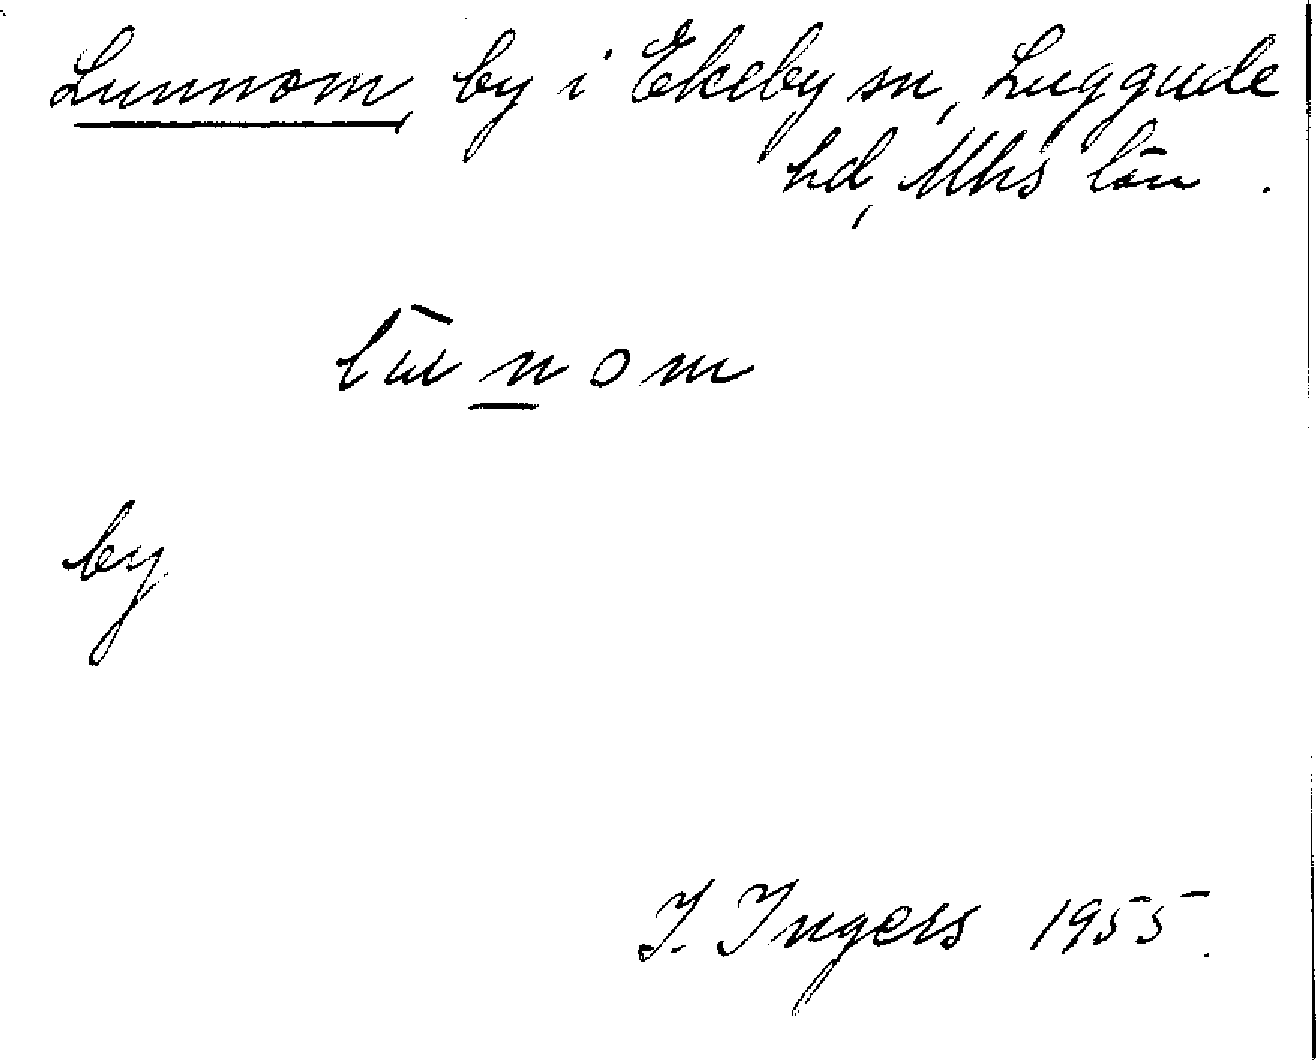 Lunnom, by i Ekeby sn, Luggude
hd, Mhs län.
lùn̲om
by
I. Ingers 1955.